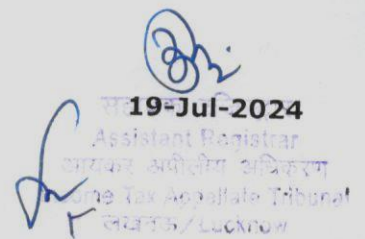 19-Jul-2024
Assistant Registrar
आयकर अपीलीय अधिकरण
Income Tax Appellate Tribunal
लखनऊ/Lucknow